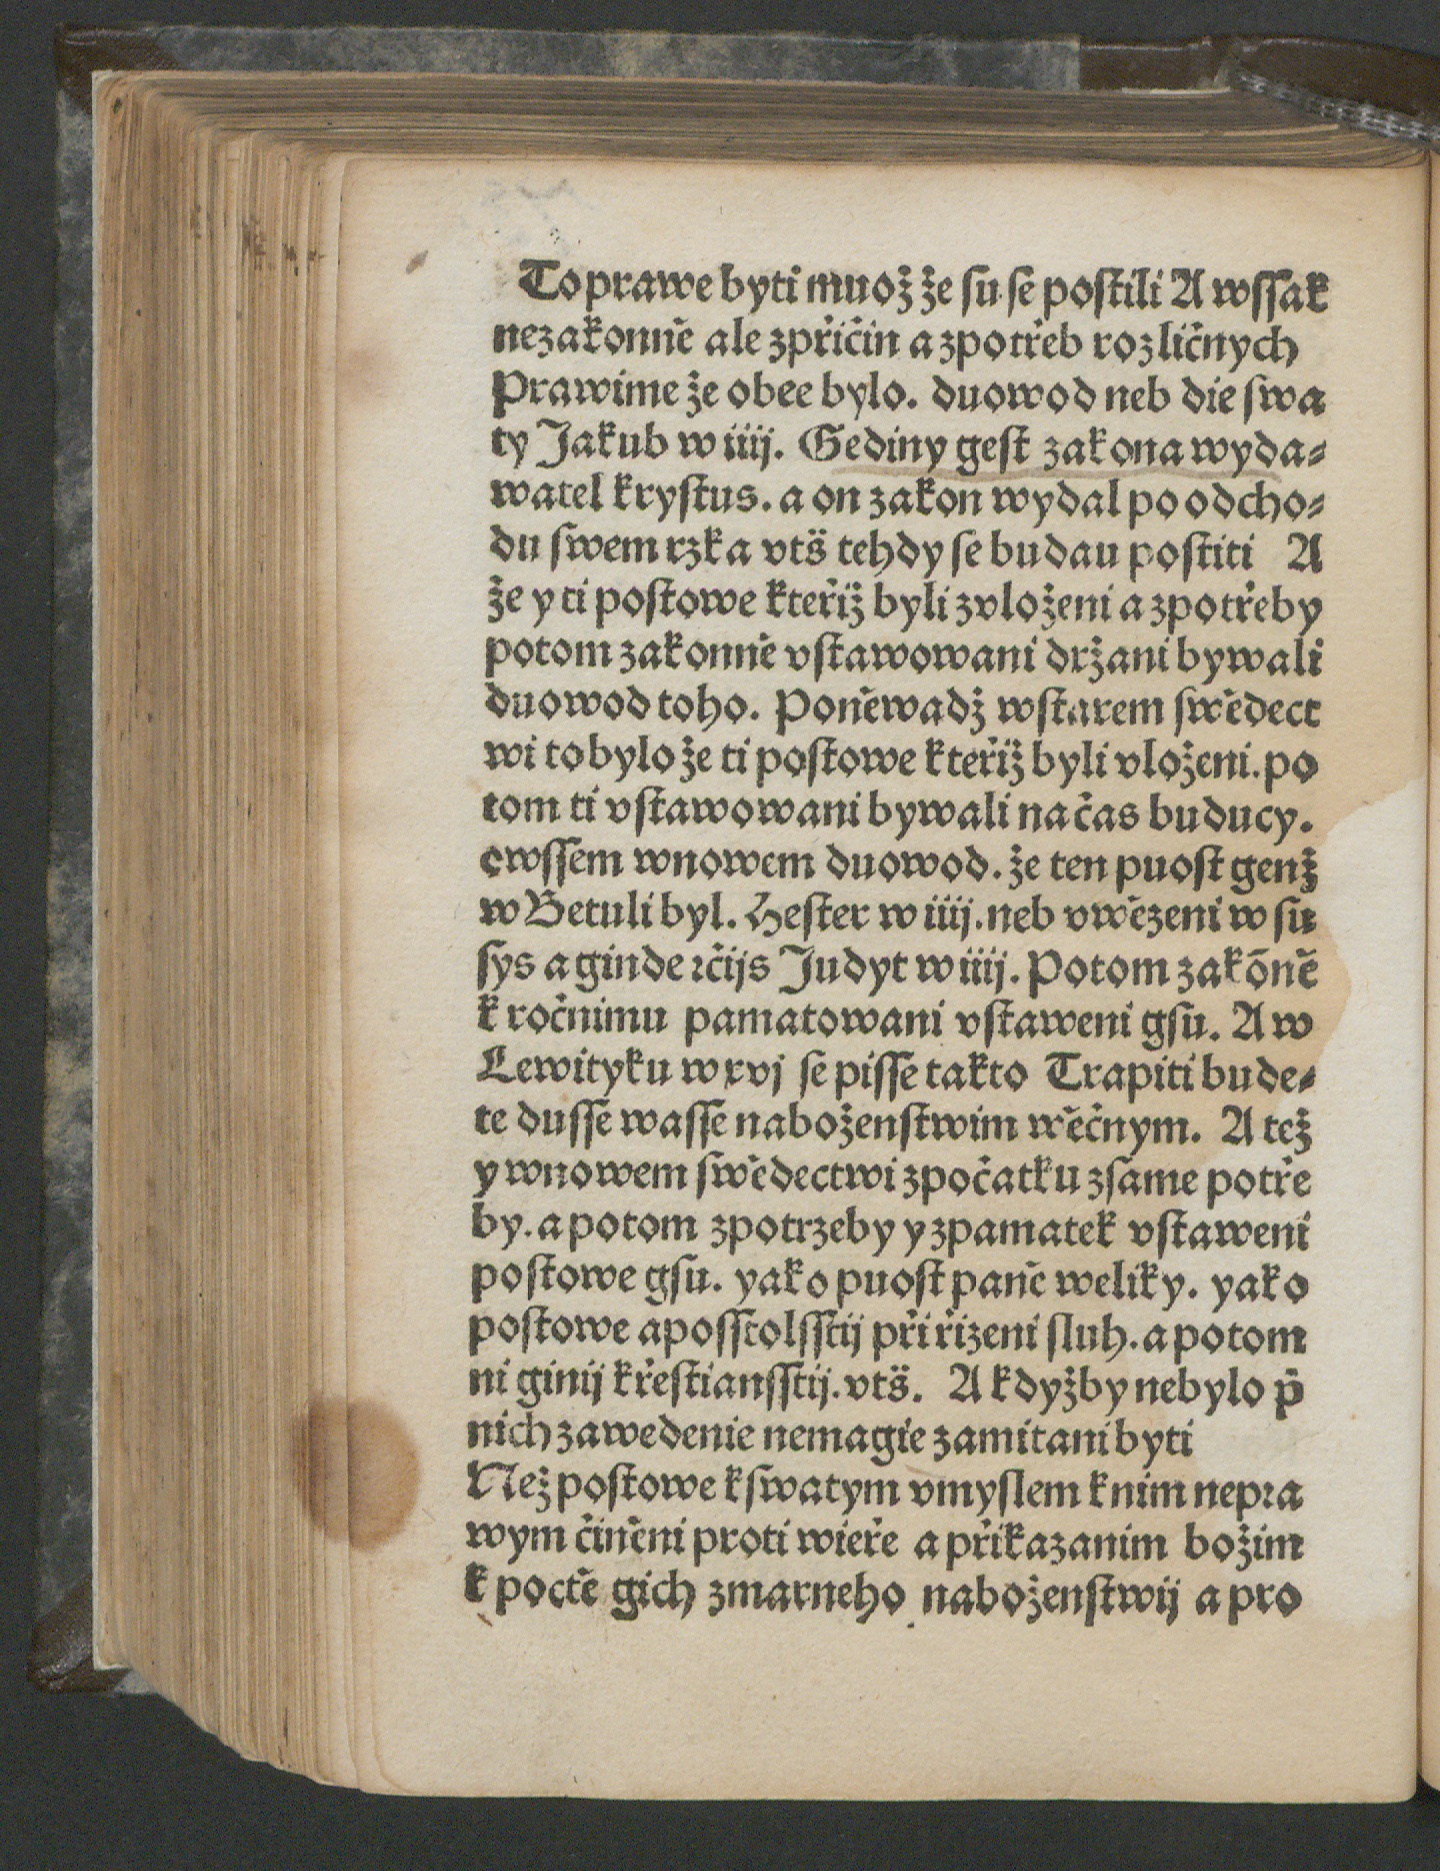 To prawe byti muož že su se poſtili A wſſak
nezakonně ale zpřičin a zpotřeb rozličnych
Prawime že obee bylo. duowod neb die ſwa
ty Jakub w iiij. Gediny geſt zakona wyda⸗
watel kryſtus. a on zakon wydal po odcho⸗
du ſwem rzka vtš tehdy ſe budau poſtiti A
že y ti poſtowe kteřiž byli zvloženi a zpotřeby
potom zakonně vſtawowani držani bywali
duowod toho. Poněwadž wſtarem ſwědect
wi to bylo že ti poſtowe kteřiž byli vloženi. po
tom ti vſtawowani bywali na čas buducy.
owſſem wnowem duowod. že ten puoſt genž
w Betuli byl. Heſter w iiij. neb vwězeni w ſu
ſys a ginde ꝛčijs Judyt w iiij. Potom zakōně
k ročnimu pamatowani vſtaweni gſu. A w
Lewityku w xvj ſe piſſe takto Trapiti bude⸗
te duſſe waſſe naboženſtwim wěčnym. A tež
y wnowem ſwědectwi zpočatku zſame potře
by. a potom zpotrzeby y zpamatek vſtaweni
poſtowe gſu. yako puoſt paně weliky. yako
poſtowe apoſſtolſſtij při řizeni ſluh. a potom
ni ginij křeſtianſſtij. vtš. A kdyžby nebylo p̄
nich zawedenie nemagie zamitani byti
Než poſtowe kſwatym vmyſlem knim nepꝛa
wym činěni proti wieře a přikazanim božim
k poctě gich zmarneho naboženſtwij a pro